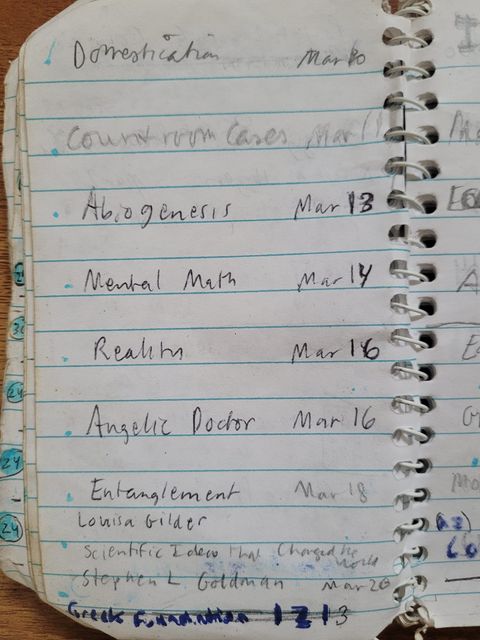 Domestication Mar 10
Courtroom Cases Mar 11
Abiogenesis Mar 13
Mental Math Mar 14
Reality Mar 16
Angelic Doctor Mar 16
Entanglement Mar 18
Louisa Gilder
Scientific Ideas that Changed the
World
Stephen L Goldman Mar 20
Greek Foundation 1 2 1 3
24
24
24